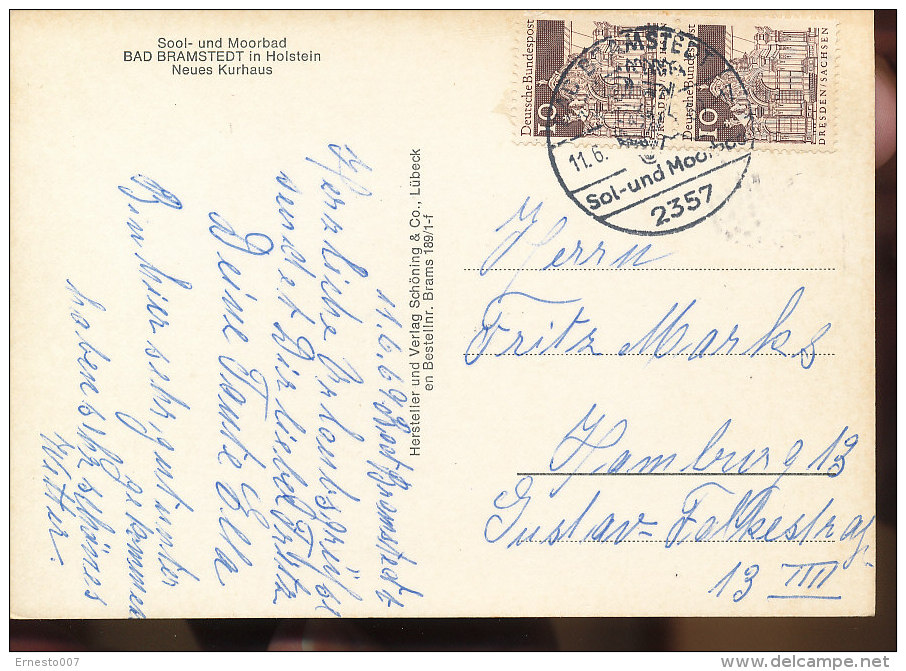 Sool- und Moorbad
BAD BRAMSTEDT in Holstein
Neues Kurhaus
11.6.69 Bad Bramstedt
Herzliche Urlaubsgrüße
sendet Dir lieber Fritz
Deine Tante Ella.
Bin hier sehr gut unter
gekommen
haben sehr schönes
Wetter.
Hersteller und Verlag Schöning & Co., Lübeck
en Bestellnr. Brams 189/1-f
Deutsche Bundespost
10
DRESDEN/SACHSEN
Deutsche Bundespost
10
DRESDEN/SACHSEN
11.6.
Sol-und Moorbad
2357
Herrn
Fritz Marks
Hamburg 13
Gustav-Falkestraß.
13 IIII
Ernesto007
www.delcampe.net